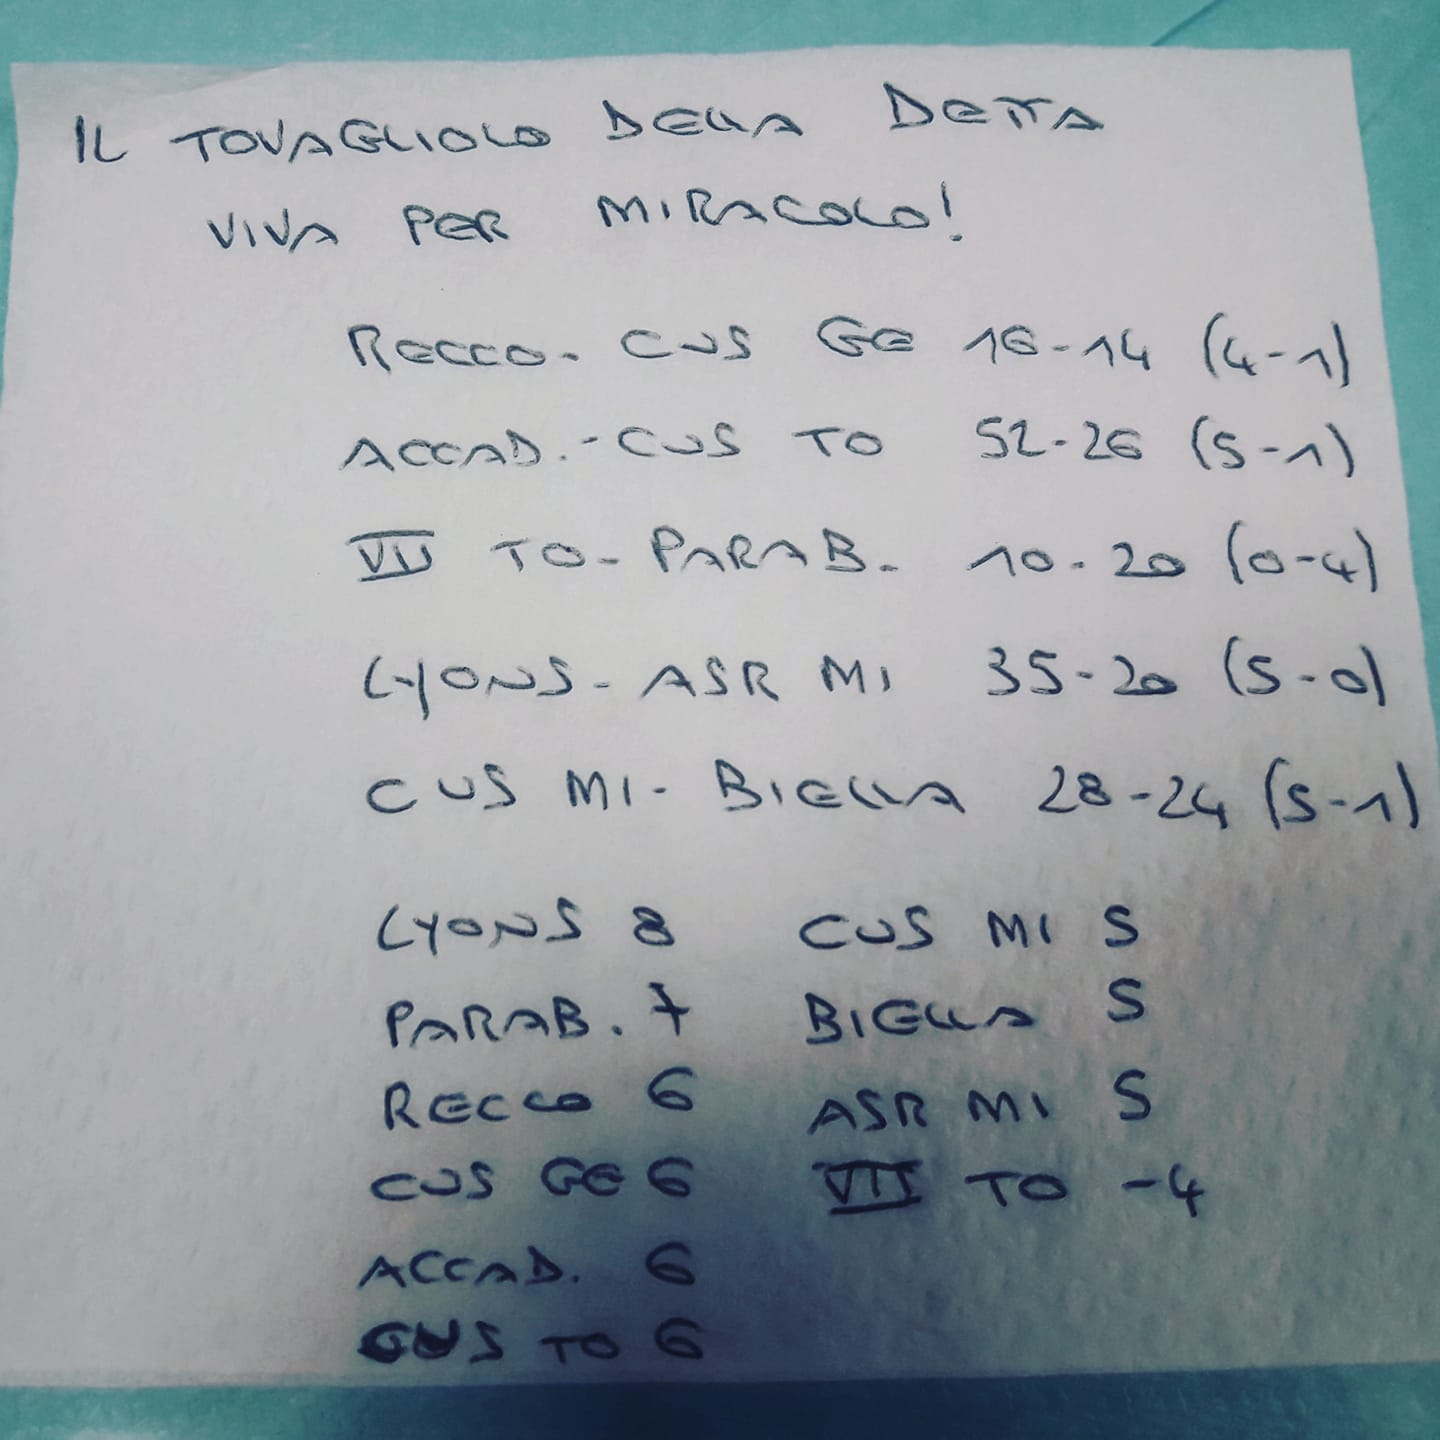 IL TOVAGLIOLO DELLA DETTA
VIVA PER MIRACOLO!
RECCO - CUS GE 16-14 (4-1)
ACCAD. - CUS TO 52-26 (5-1)
VII TO - PARAB. 10-20 (0-4)
LYONS - ASR MI 35-20 (5-0)
CUS MI - BIELLA 28-24 (5-1)
LYONS 8 CUS MI 5
PARAB. 7 BIELLA 5
RECCO 6 ASR MI 5
CUS GE 6 VII TO -4
ACCAD. 6
CUS TO 6